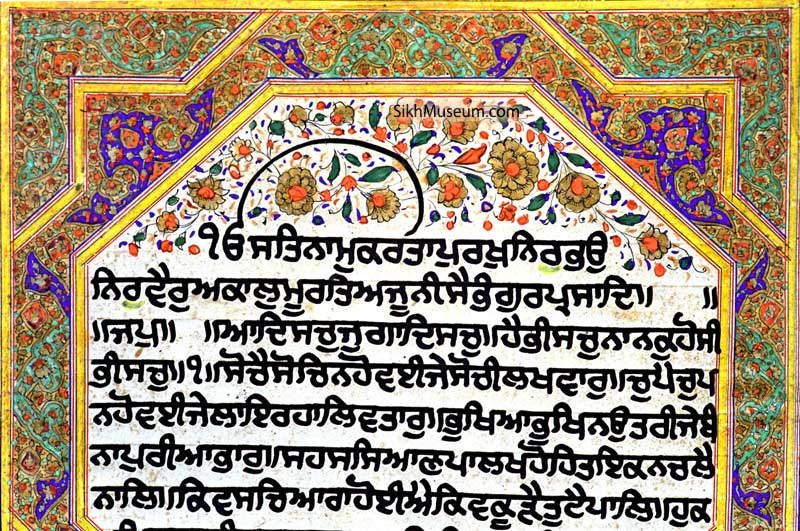 SikhMuseum.com
ੴਸਤਿਨਾਮੁਕਰਤਾਪੁਰਖੁਨਿਰਭਉ
ਨਿਰਵੈਰੁਅਕਾਲਮੂਰਤਿਅਜੂਨੀਸੈਭੰਗੁਰਪ੍ਰਸਾਦਿ॥ ॥
॥ਜਪੁ॥ ॥ਆਦਿਸਚੁਜੁਗਾਦਿਸਚੁ॥ਹੈਭੀਸਚੁਨਾਨਕਹੋਸੀ
ਭੀਸਚੁ॥੧॥ਸੋਚੈਸੋਚਿਨਹੋਵਈਜੇਸੋਚੀਲਖਵਾਰ॥ਚੁਪੈਚੁਪ
ਨਹੋਵਈਜੇਲਾਇਰਹਾਲਿਵਤਾਰ॥ਭੁਖਿਆਭੁਖਨਉਤਰੀਜੇਬੰ
ਨਾਪੁਰੀਆਭਾਰ॥ਸਹਸਸਿਆਣਪਾਲਖਹੋਹਿਤਇਕਨਚਲੈ
ਨਾਲਿ॥ਕਿਵਸਚਿਆਰਾਹੋਈਐਕਿਵਕੂੜੈਤੁਟੈਪਾਲਿ॥ਹੁਕ